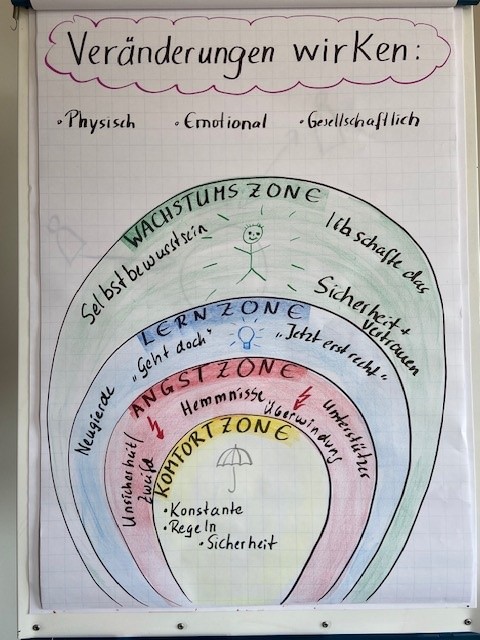 Veränderungen wirken:
• Physisch
• Emotional
• Gesellschaftlich
WACHSTUMSZONE
Selbstbewusstsein
Ich schaffe das
Sicherheit +
Vertrauen
LERNZONE
Neugierde
„Geht doch“
„Jetzt erst recht“
ANGSTZONE
Unsicherheit/
Zweifel
Hemmnisse
Überwindung
Unterstützer
KOMFORTZONE
• Konstante
• Regeln
• Sicherheit